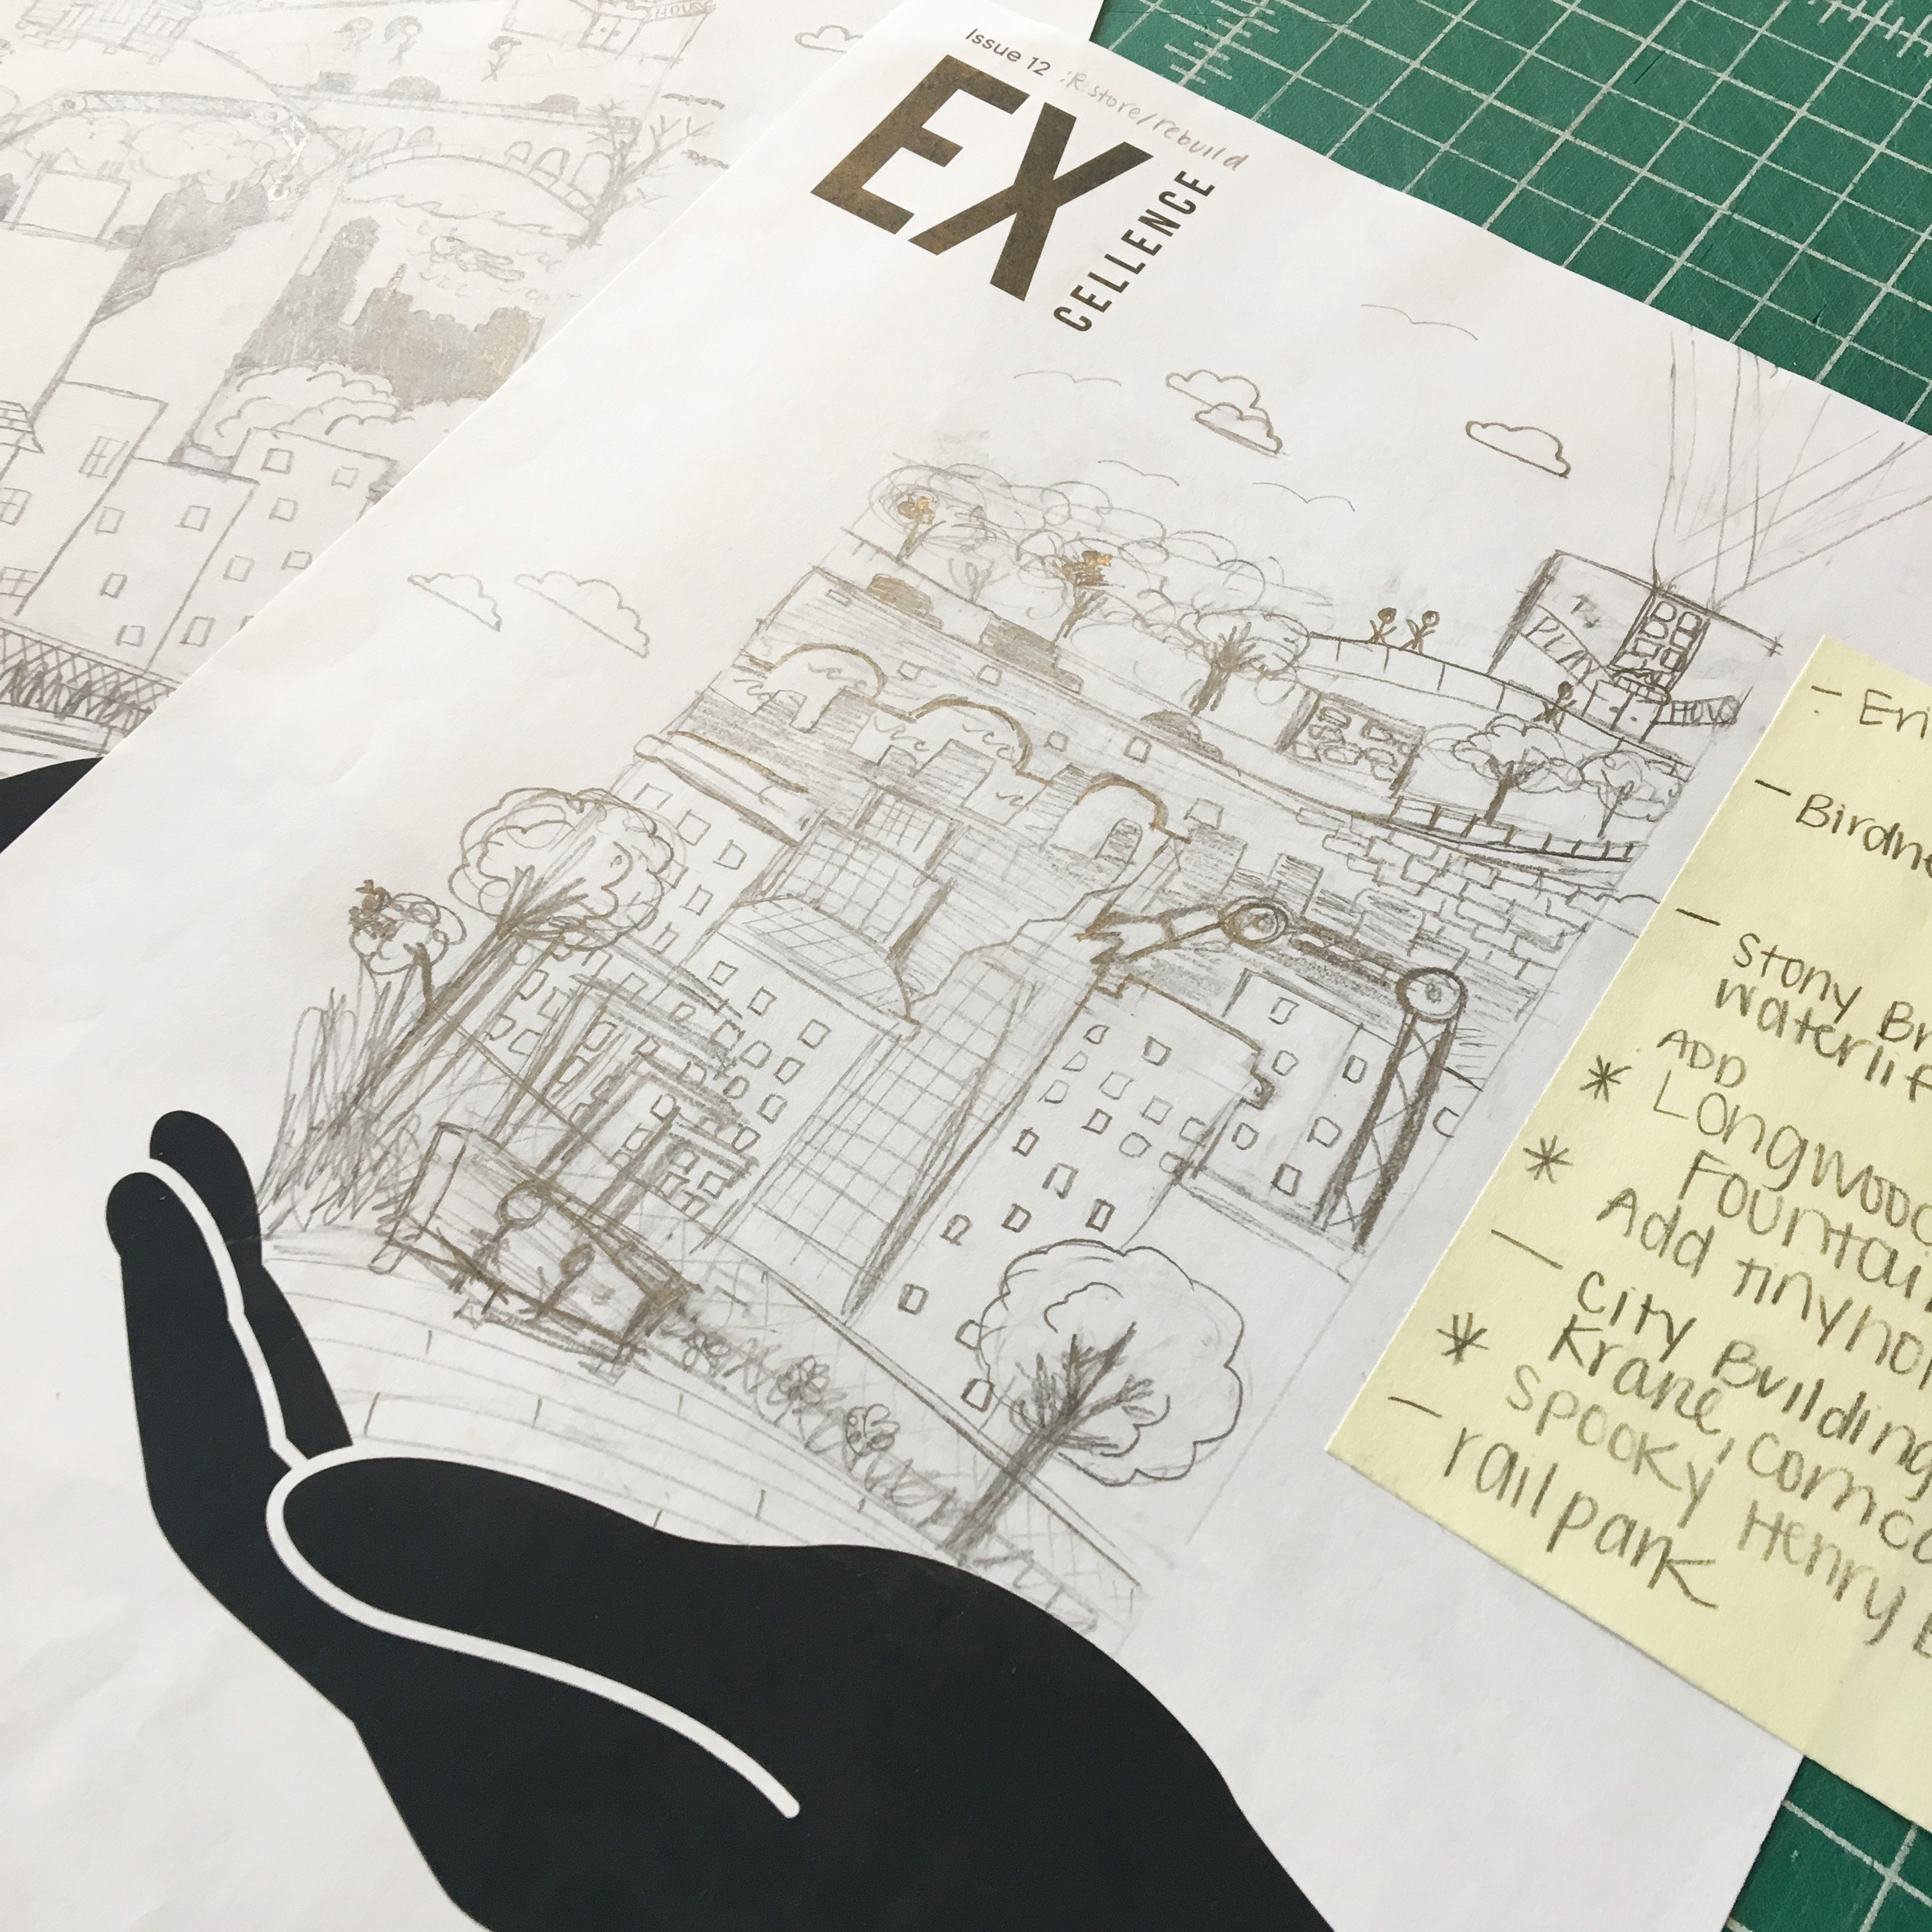 Issue 12
:Restore/rebuild
EX
CELLENCE
PLAY
HOUS
- Eri
- Birdne
- Stony Br
Waterlif
ADD
* Longwood
Fountai
* Add tinyho
- City Building
* Krane, corn
Spooky Henry
- railpark